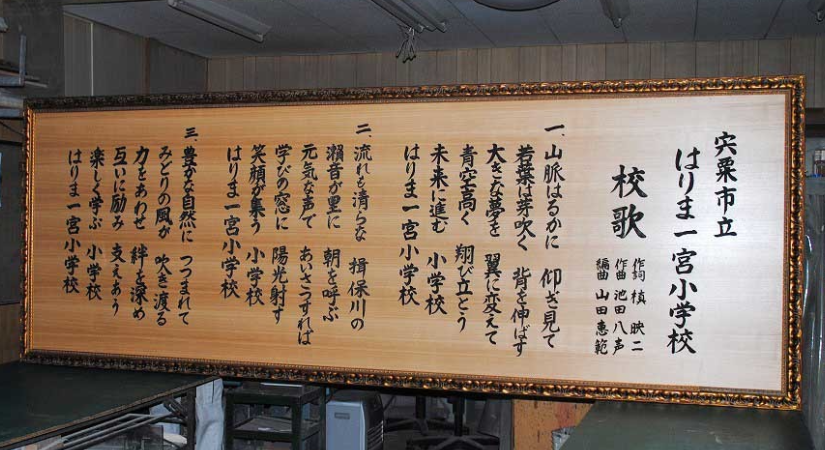 宍粟市立
はりま一宮小学校
校歌
作詞 槙 映二
作曲 池田八声
編曲 山田恵範
一、山脈はるかに 仰ぎ見て
若葉は芽吹く 背を伸ばす
大きな夢を 翼に変えて
青空高く 翔び立とう
未来に進む 小学校
はりま一宮小学校
二、流れも清らな 揖保川の
瀬音が里に 朝を呼ぶ
元気な声で あいさつすれば
学びの窓に 陽光射す
笑顔が集う 小学校
はりま一宮小学校
三、豊かな自然に つつまれて
みどりの風が 吹き渡る
力をあわせ 絆を深め
互いに励み 支えあう
楽しく学ぶ 小学校
はりま一宮小学校